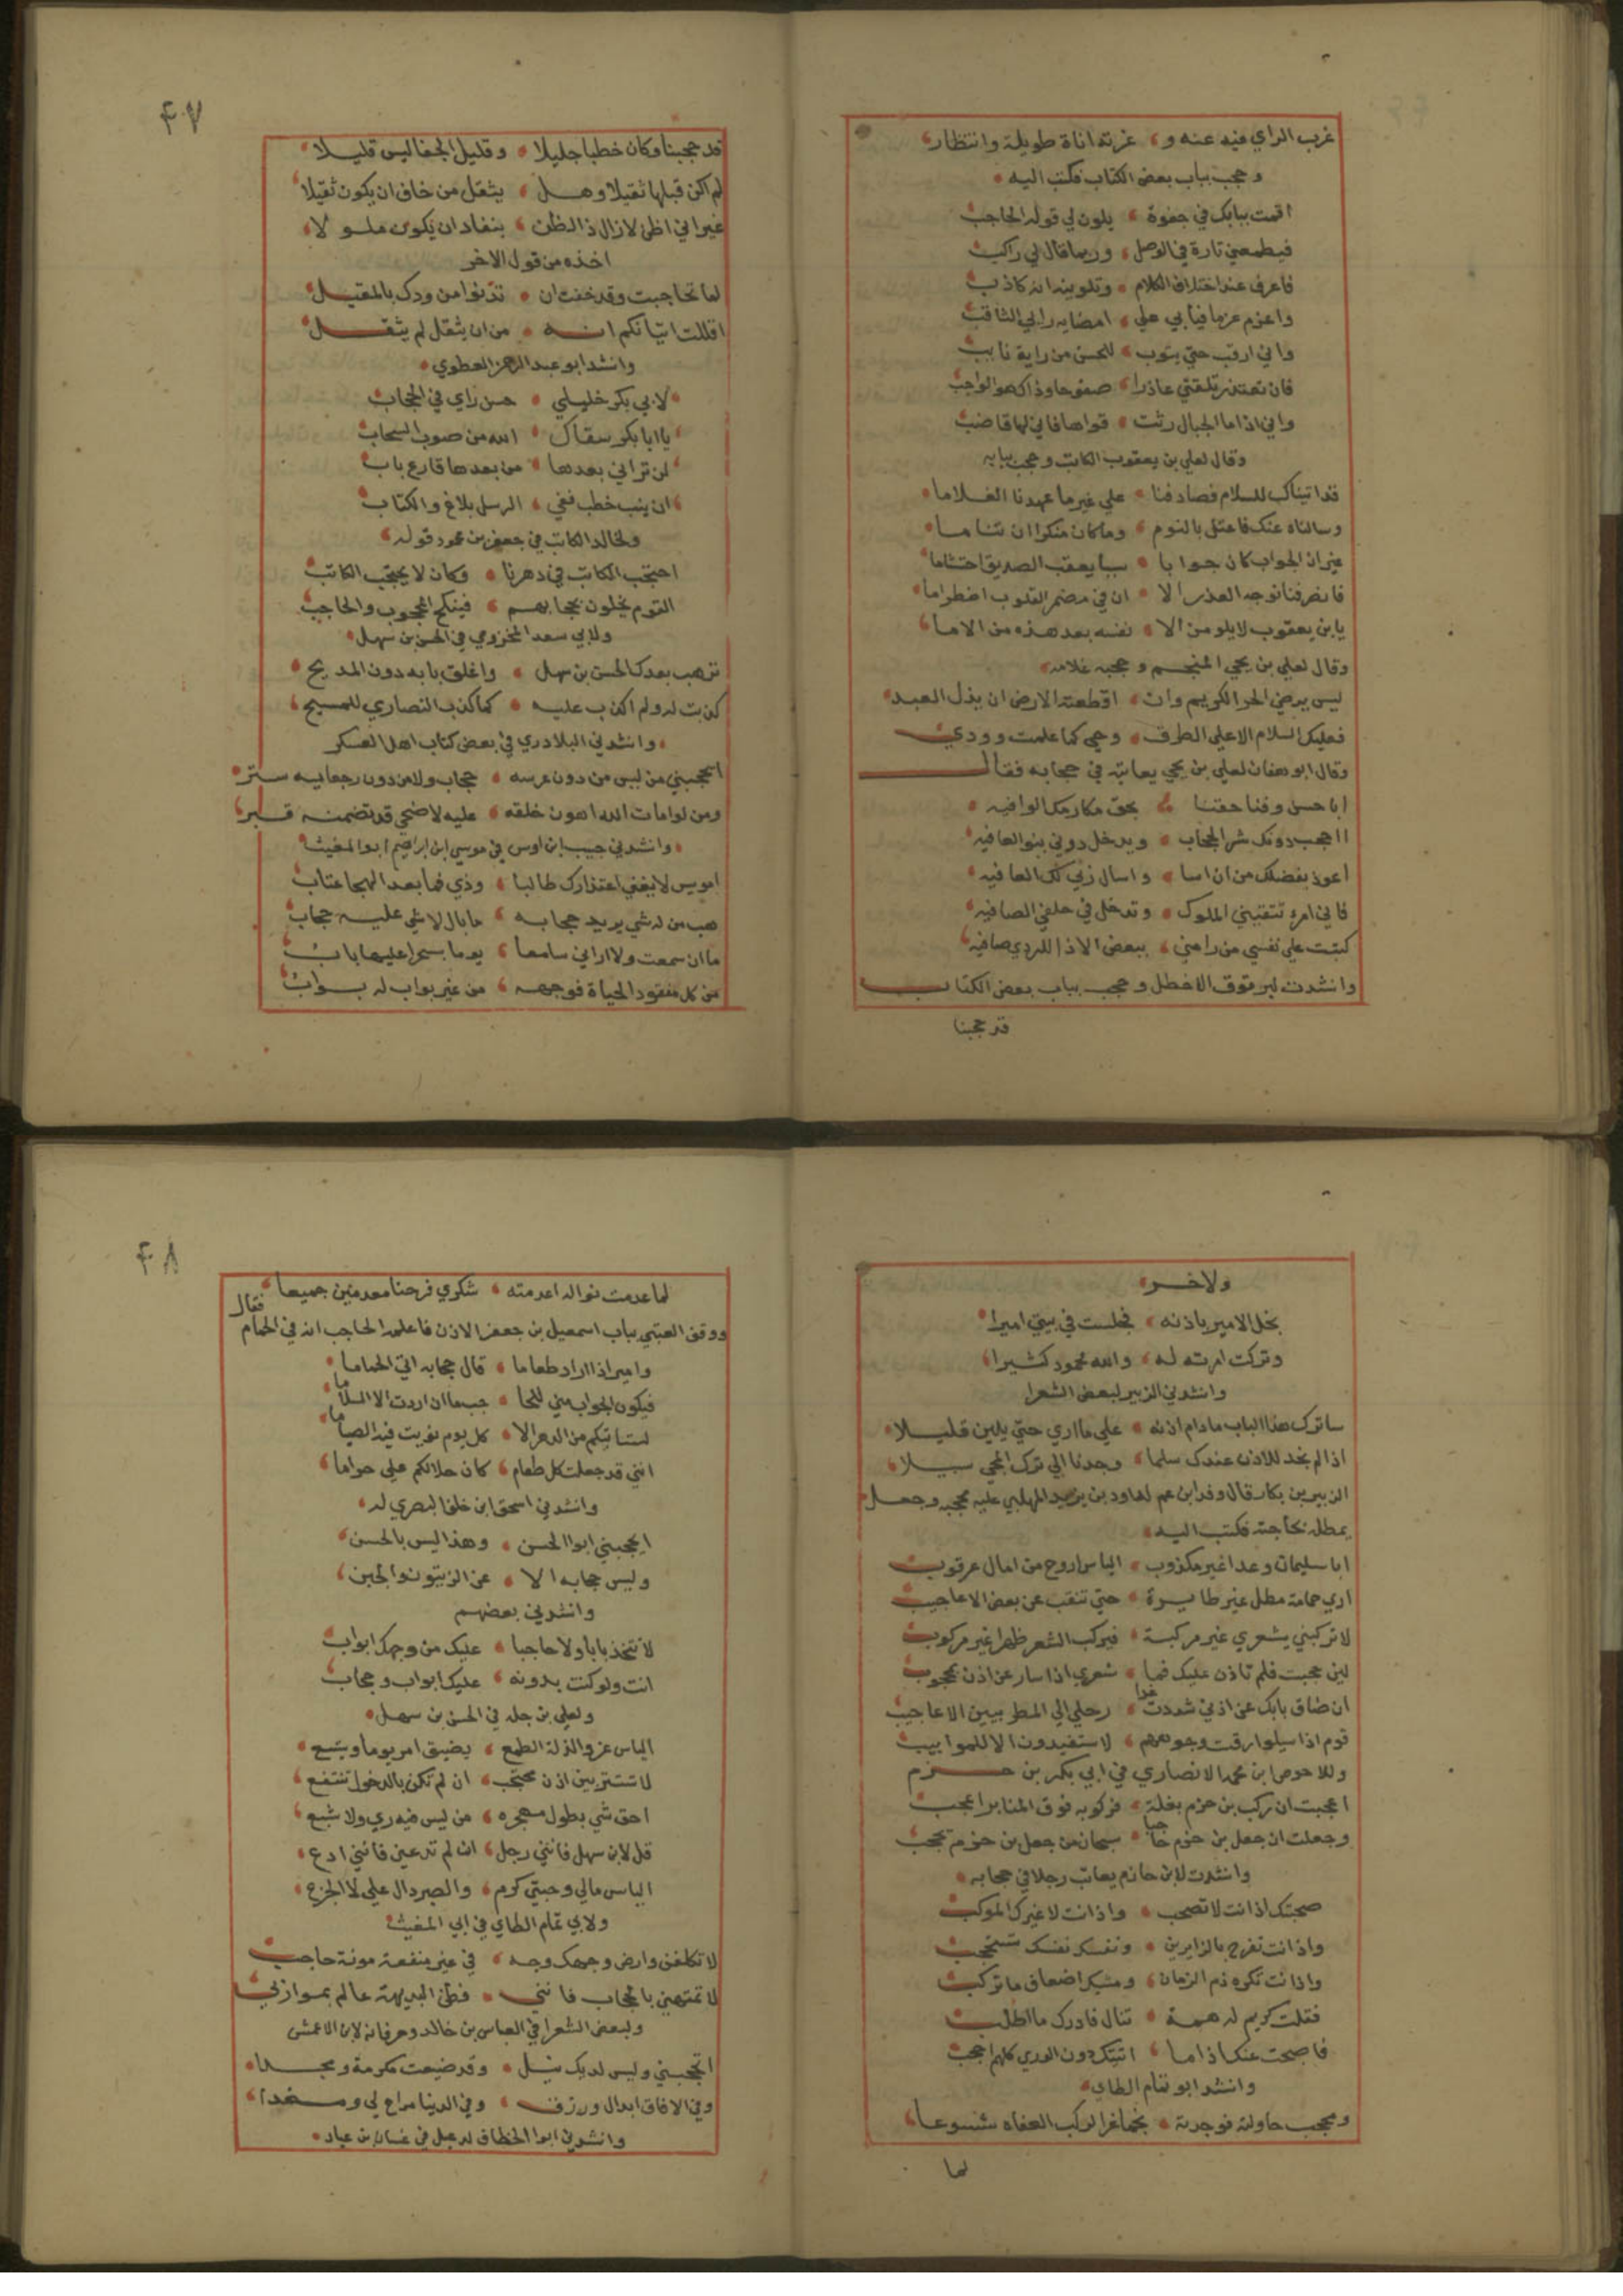 غرب الراي فيه عنه و غرته اناة طويلة وانتظار
وحجب بباب بعض الكتاب فكتب اليه
اقمت ببابك في جفوة يلون لي قوله الحاجب
فيطمعني تارة في الوصل وربما قال لي راكب
فاعرف عند اختلاف الكلام وتلوينه انه كاذب
واعزم عزما فيأبي علي امضايه رايي الثاقب
واني ارقب حتي يتوب للحسن من رايه نايب
فان تعتذر تلقني عاذرا صفوحا وذاك هو الواجب
واني اذا ما الجبال رثت قواها فاني لها قاضب
وقال لعلي بن يعقوب الكاتب وحجب ببابه
قد اتيناك للسلام فصادفنا علي غير ما عهدنا الغلاما
وسالناه عنك فاعتل بالنوم وما كان منكرا ان تناما
غير ان الجواب كان جوابا سيا يعقب الصديق احتشاما
فانصرفنا نوجه العذر الا ان في مضمر القلوب اضطراما
يابن يعقوب لا يلومن الا نفسه بعد هذه من الاما
وقال لعلي بن يحيي المنجم وحجبه غلامه
ليس يرضي الحر الكريم وان اقطعته الارض ان يذل العبد
فعليك السلام الا علي الطرق وحبي كما علمت وودي
وقال ابو هفان لعلي بن يحيي يعاتبه في حجابه فقال
ابا حسن وفنا حقنا بحق مكارمك الوافيه
ااحجب دونك شر الحجاب ويدخل دوني بنو العافيه
اعوذ بفضلك من ان اسا واسال ربي لك العافيه
فاني امرء تتقيني الملوك وتدخل في حلفي الصافيه
كتبت علي نفسي من رامني ببعض الاذا للردي صافيه
وانشدت لبرقوق الاخطل وحجب بباب بعض الكتاب
قد حجبنا
٤٧
قد حجبنا وكان خطبا جليلا وقليل الجفا ليس قليلا
لم اكن قبلها ثقيلا وهل يثقل من خاف ان يكون ثقيلا
غير اني اظن لا زال ذا الظن بنفاد ان يكون ملولا
اخذه من قول الاخر
لما تحاجبت وقد خفت ان تدنوا من ودك بالمقيل
اقللت اتيانكم انه من ان يثقل لم يثقل
وانشد ابو عبد الرحمن العطوي
لابي بكر خليلي حسن راي في الحجاب
يا ابا بكر سقاك الله من صوب السحاب
لن تراني بعدها من بعدها قارع باب
ان ينب خطب ففي الرسل بلاغ والكتاب
ولخالد الكاتب في جعفر بن محمود قوله
احتجب الكاتب في دهرنا وكان لا يحتجب الكاتب
القوم يخلون بحجابهم فينكح المحجوب والحاجب
ولابي سعد المخزومي في الحسن بن سهل
ترهب بعدك الحسن بن سهل واغلق بابه دون المديح
كذبت له ولم اكذب عليه كما كذب النصاري للمسيح
وانشدني البلادري في بعض كتاب اهل العسكر
اتحجبني من ليس من دون عرسه حجاب ولا من دون رجعاييه ستر
ومن لو امات الله اهون خلقه عليه لاضحي قد تضمنه قبر
وانشدني حبيب ابن اوس في موسي ابن ابراهيم ابو المغيث
امويس لا يغني اعتذارك طالبا وذي فما بعد الهجا عتاب
هب من له شي يريد حجابه ما بال لا شي عليه حجاب
ما ان سمعت ولا اراني سامعا يوما بسحرا عليها باب
من كل مفقود الحياة فوجهه من غير بواب له بواب
ولاخر
بخل الامير باذنه فجلست في بيتي اميرا
وتركت امرته له والله محمود كثيرا
وانشدني الزبير لبعض الشعرا
ساترك هذا الباب ما دام اذنه علي ما اري حتي يلين قليلا
اذا لم نجد للاذن عندك سلما وجدنا الي ترك المجي سبيلا
الزبير بن بكار قال وفد ابن عم لداود بن يزيد المهلبي عليه فحجبه وجعل
يمطله بحاجته فكتب اليه
ابا سليمان وعدا غير مكذوب الياس اروح من امال عرقوب
اري حمامة مطل غير طايرة حتي تنقب عن بعض الاعاجيب
لا تركبني بشعري غير مركبة فيركب الشعر ظهرا غير مركوب
لين حجبت فلم تاذن عليك فما شعري اذا سار عن اذن بمحجوب
ان ضاق بابك عن اذني شددت غدا رحلي الي المطر بيين الاعاجيب
قوم اذا سيلوا رقت وجوههم لا ستفيدون الا للمواهيب
وللاحوص ابن محمد الانصاري في ابي بكر بن حزم
اعجبت ان ركب بن حزم بغلة فركوبه فوق المنابر اعجب
وجعلت ان جعل بن حزم حاجبا سبحان من جعل بن حزم يحجب
وانشدت لابن حازم يعاتب رجلا في حجابه
صحبتك اذ انت لا تصحب واذ انت لا غيرك الموكب
واذ انت تفرح بالزايرين ونفسك نفسك تستحجب
واذ انت تكره ذم الزمان ومشيك اضعاف ما تركب
فقلت كريم له همة تنال فادرك ما اطلب
فاصبحت عنك اذا ما اتيتك دون الوري كلهم احجب
وانشد ابو تمام الطاي
ومحجب حاولته فوجدته نجما عن الركب العفاه شسوعا
لما
٤٨
لما عدمت نواله اعدمته شكري فرحنا معدمين جميعا
ووقف العتبي بباب اسمعيل بن جعفر الاذن فاعلمه الحاجب انه في الحمام فقال
وامير اذا اراد طعاما قال حجابه اتي الحماما
فيكون الجواب مني للحا جب ما ان اردت الا السلاما
لست اتيكم من الدهر الا كل يوم نويت فيه الصياما
انني قد جعلت كل طعام كان حلالكم علي حراما
وانشدني اسحق ابن خلف البصري له
ايحجبني ابوا الحسن وهذا ليس بالحسن
وليس حجابه الا عن الزيتون والجبن
وانشدني بعضهم
لا تتخذ بابا ولا حاجبا عليك من وجهك ابواب
انت ولو كنت بدونه عليك ابواب وحجاب
ولعلي بن جبله في الحسن بن سهل
الياس عز والذلة الطمع يضيق امر يوما ويتسع
لا تستتر بين اذن محتجب ان لم تكن بالدخول تنتفع
احق شي بطول مهجره من ليس فيه ري ولا شبع
قل لابن سهل فانني رجل ان لم تدعني فانني ادع
الياس مالي وجبتي كرم والصبر دال علي لا الجزع
ولابي تمام الطاي في ابي المغيث
لا تكلفن وارض وجهك وجه في غير منفعة مونة حاجب
لا تمتهني بالحجاب فانني فطن البديهة عالم بموازني
ولبعض الشعرا في العباس بن خالد وحرفانه لابن الاعمش
اتحجبني وليس لديك نيل وقد ضيعت مكرمة ومجدا
وفي الافاق ابدال ورزق وفي الدنيا مراح لي ومغدا
وانشدني ابو الخطاف لدعبل في غسان بن عباد